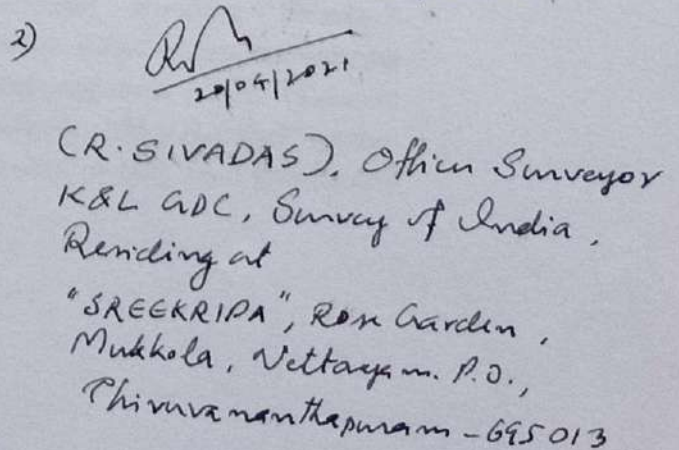 2)
20/04/2021
(R. SIVADAS), Officer Surveyor
K&L GDC, Survey of India,
Residing at
"SREEKRIPA", Rose Garden,
Mukkola, Nettayam. P.O.,
Thiruvananthapuram - 695013